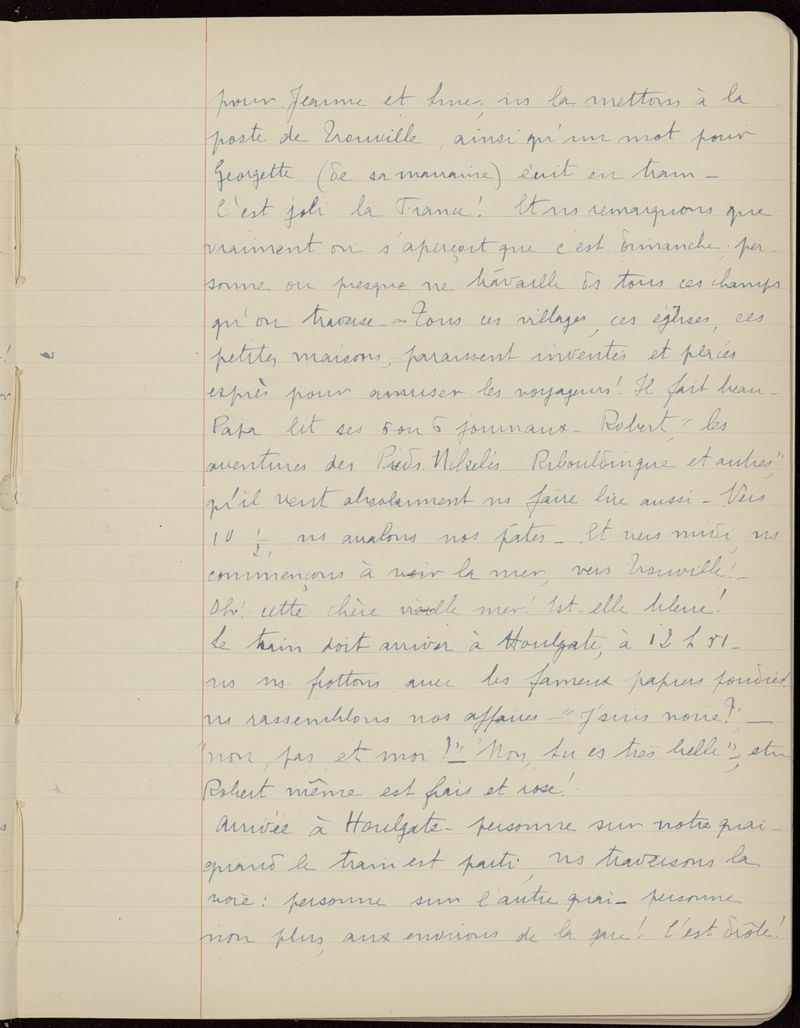 pour Jeanne et Line; ns la mettons à la
poste de Trouville, ainsi qu'un mot pour
Georgette (de sa marraine) écrit en train –
C'est joli la France! Et ns remarquons que
vraiment on s'aperçoit que c'est dimanche; per-
sonne ou presque ne travaille ds tous ces champs
qu'on traverse – Tous ces villages, ces églises, ces
petites maisons, paraissent inventés et placés
exprès pour amuser les voyageurs! Il fait beau –
Papa lit ses 5 ou 6 journaux – Robert, "les
aventures des Pieds Nikelés, Ribouldingue et autres",
qu'il veut absolument ns faire lire aussi – Vers
10 1/2, ns avalons nos pâtes – Et vers midi, ns
commençons à voir la mer, vers Trouville! –
Oh! cette chère vieille mer! Est-elle bleue!
Le train doit arriver à Houlgate, à 12 h 51 –
ns ns frottons avec les fameux papiers poudrés.
ns rassemblons nos affaires – "J'suis noire?" –
"non, pas et moi?" – "Non, tu es très belle" –, etc
Robert même est frais et rose!
Arrivée à Houlgate – personne sur notre quai –
quand le train est parti, ns traversons la
voie: personne sur l'autre quai – personne
non plus, aux environs de la gare! C'est drôle!